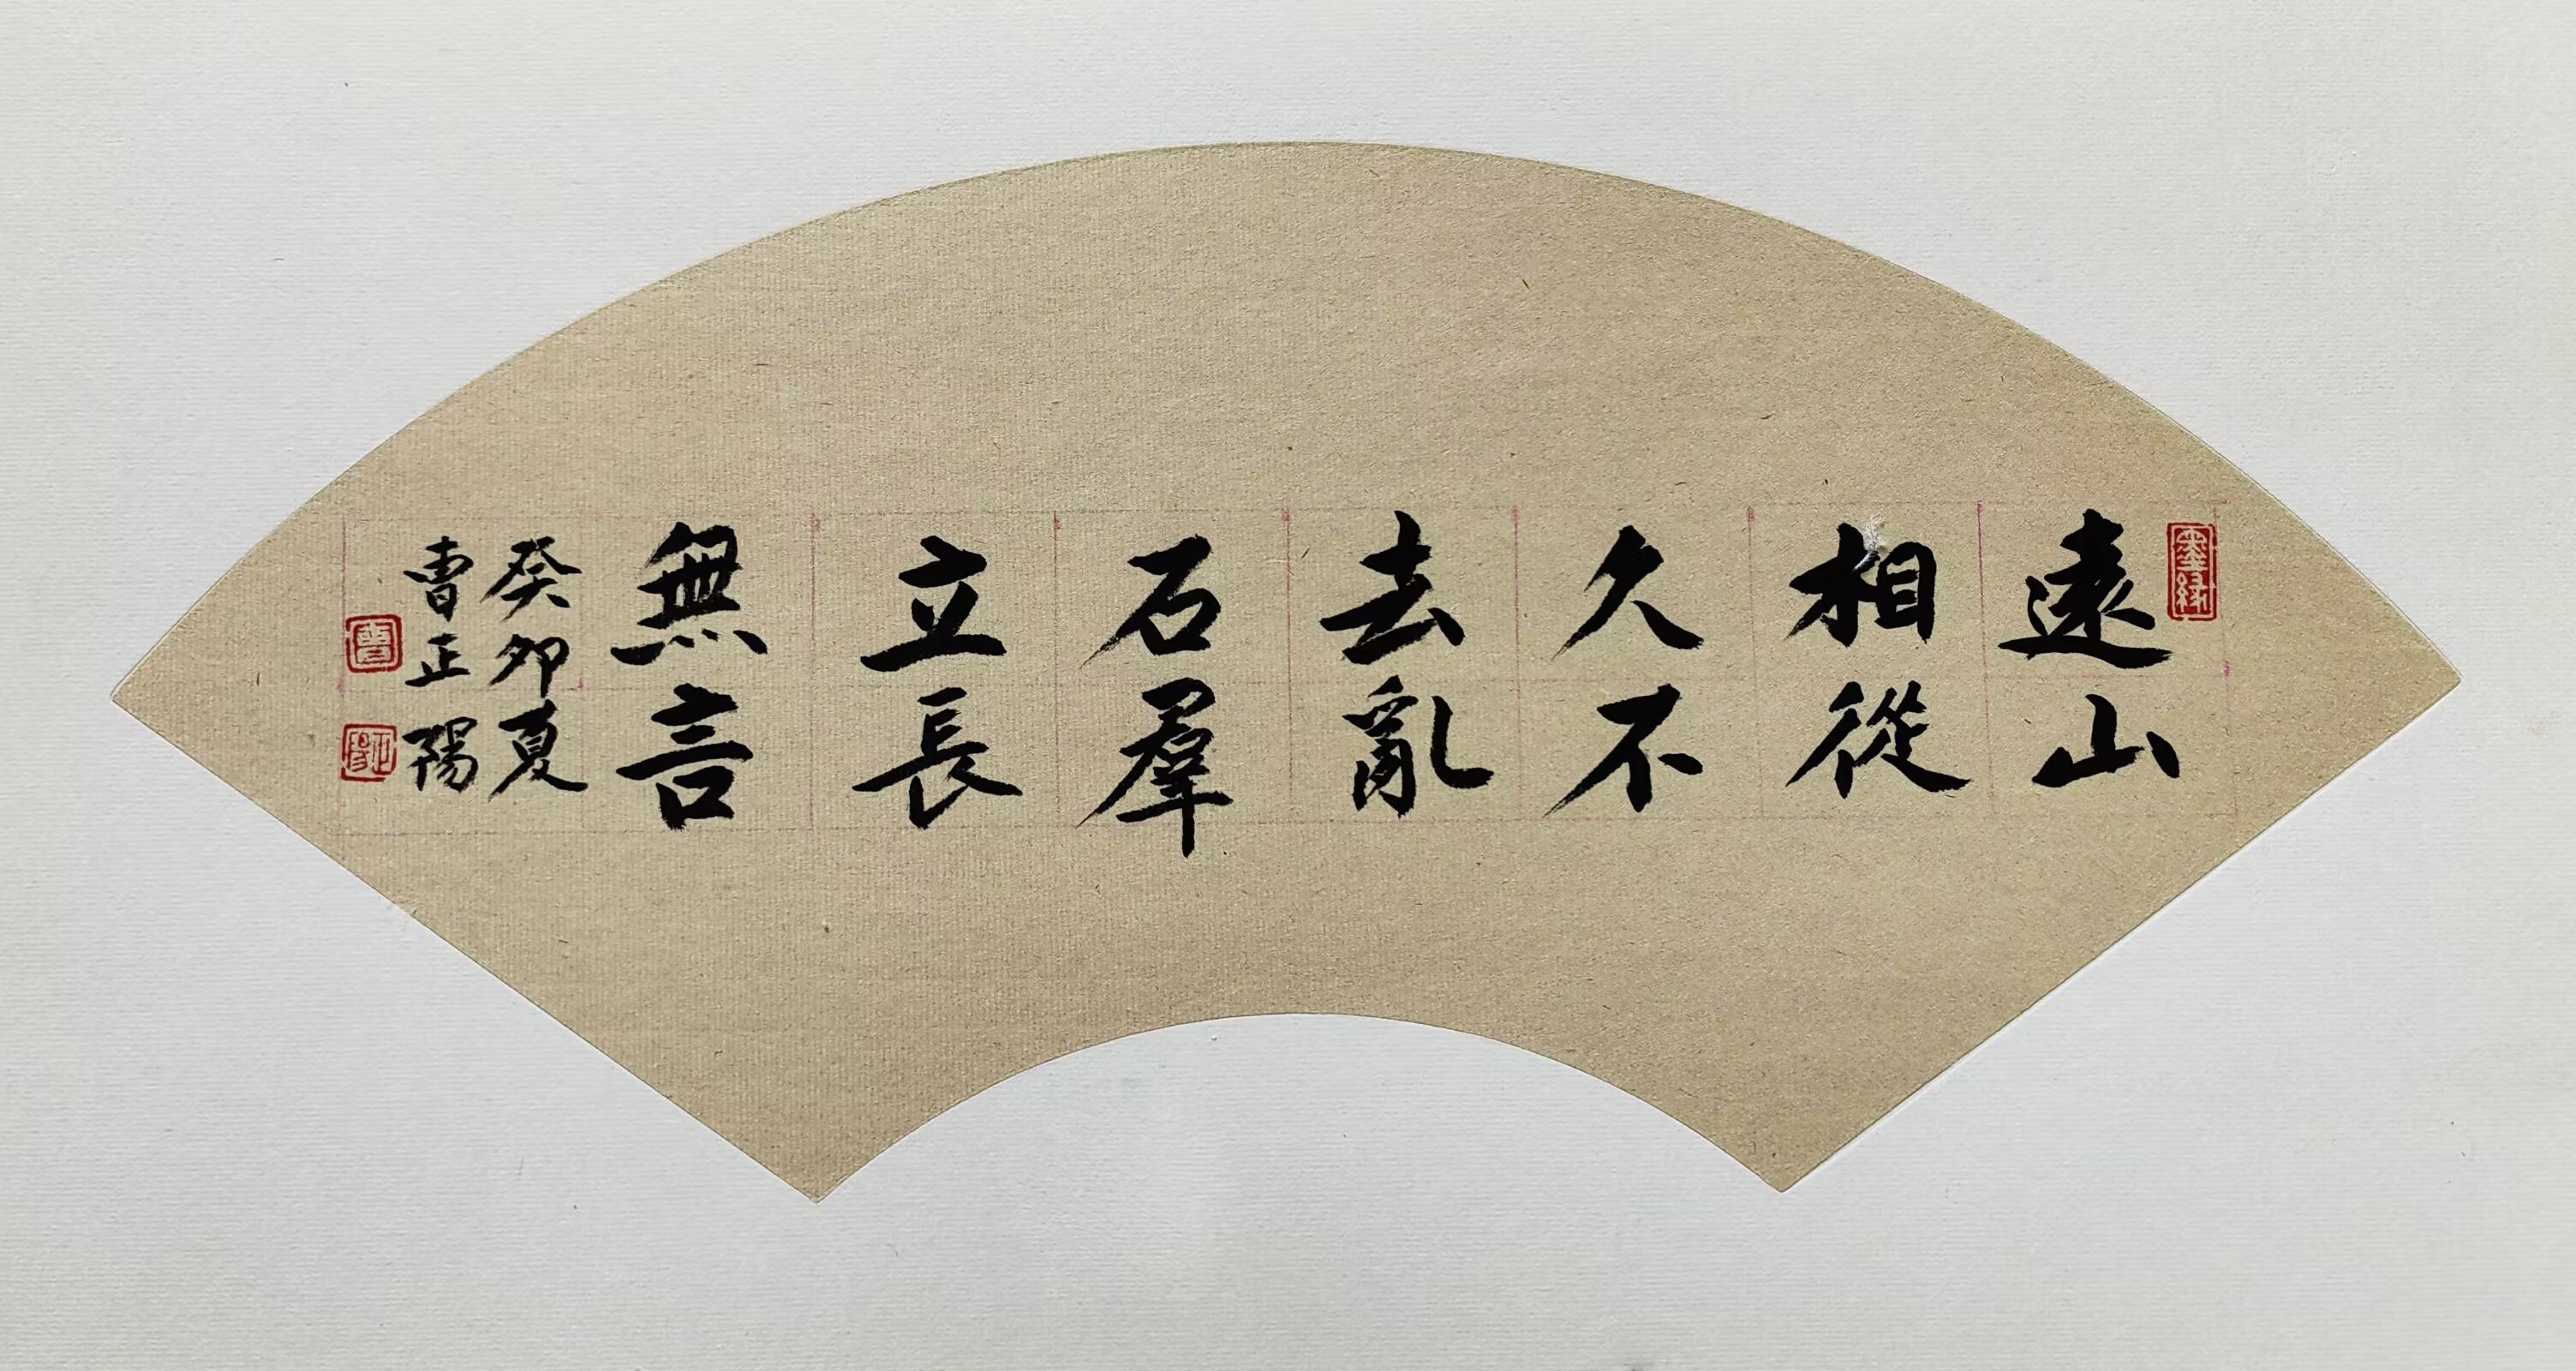 墨缘
遠山
相從
久不
去亂
石羣
立長
無言
癸卯夏
曹正陽
曹
正陽